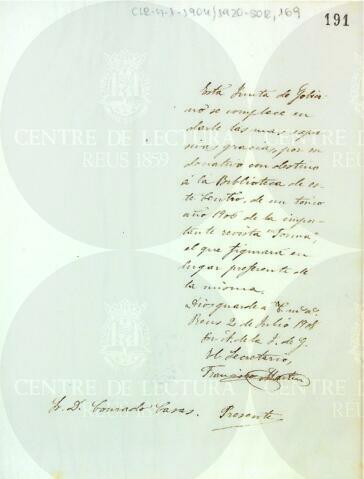 CLR-4-1-1904/1920-SOR, 169
191
Esta Junta de Gobier-
no se complace en
darle las mas expre-
sivas gracias, por su
donativo con destino
á la Biblioteca de es-
te Centro, de un tomo
año 1906 de la impor-
tante revista "Forma",
el que figurará en
lugar preferente de
la misma.
Dios guarde a V. m. a.
Reus 2 de Julio 1908
Por A. de la J. de G.
El Secretario,
Francisco
Sr. D. Conrado Casas. Presente.
CENTRE DE LECTURA
REUS 1859
CENTRE DE LECTURA
REUS 1859
CENTRE DE LECTURA
CENTRE DE LECTURA